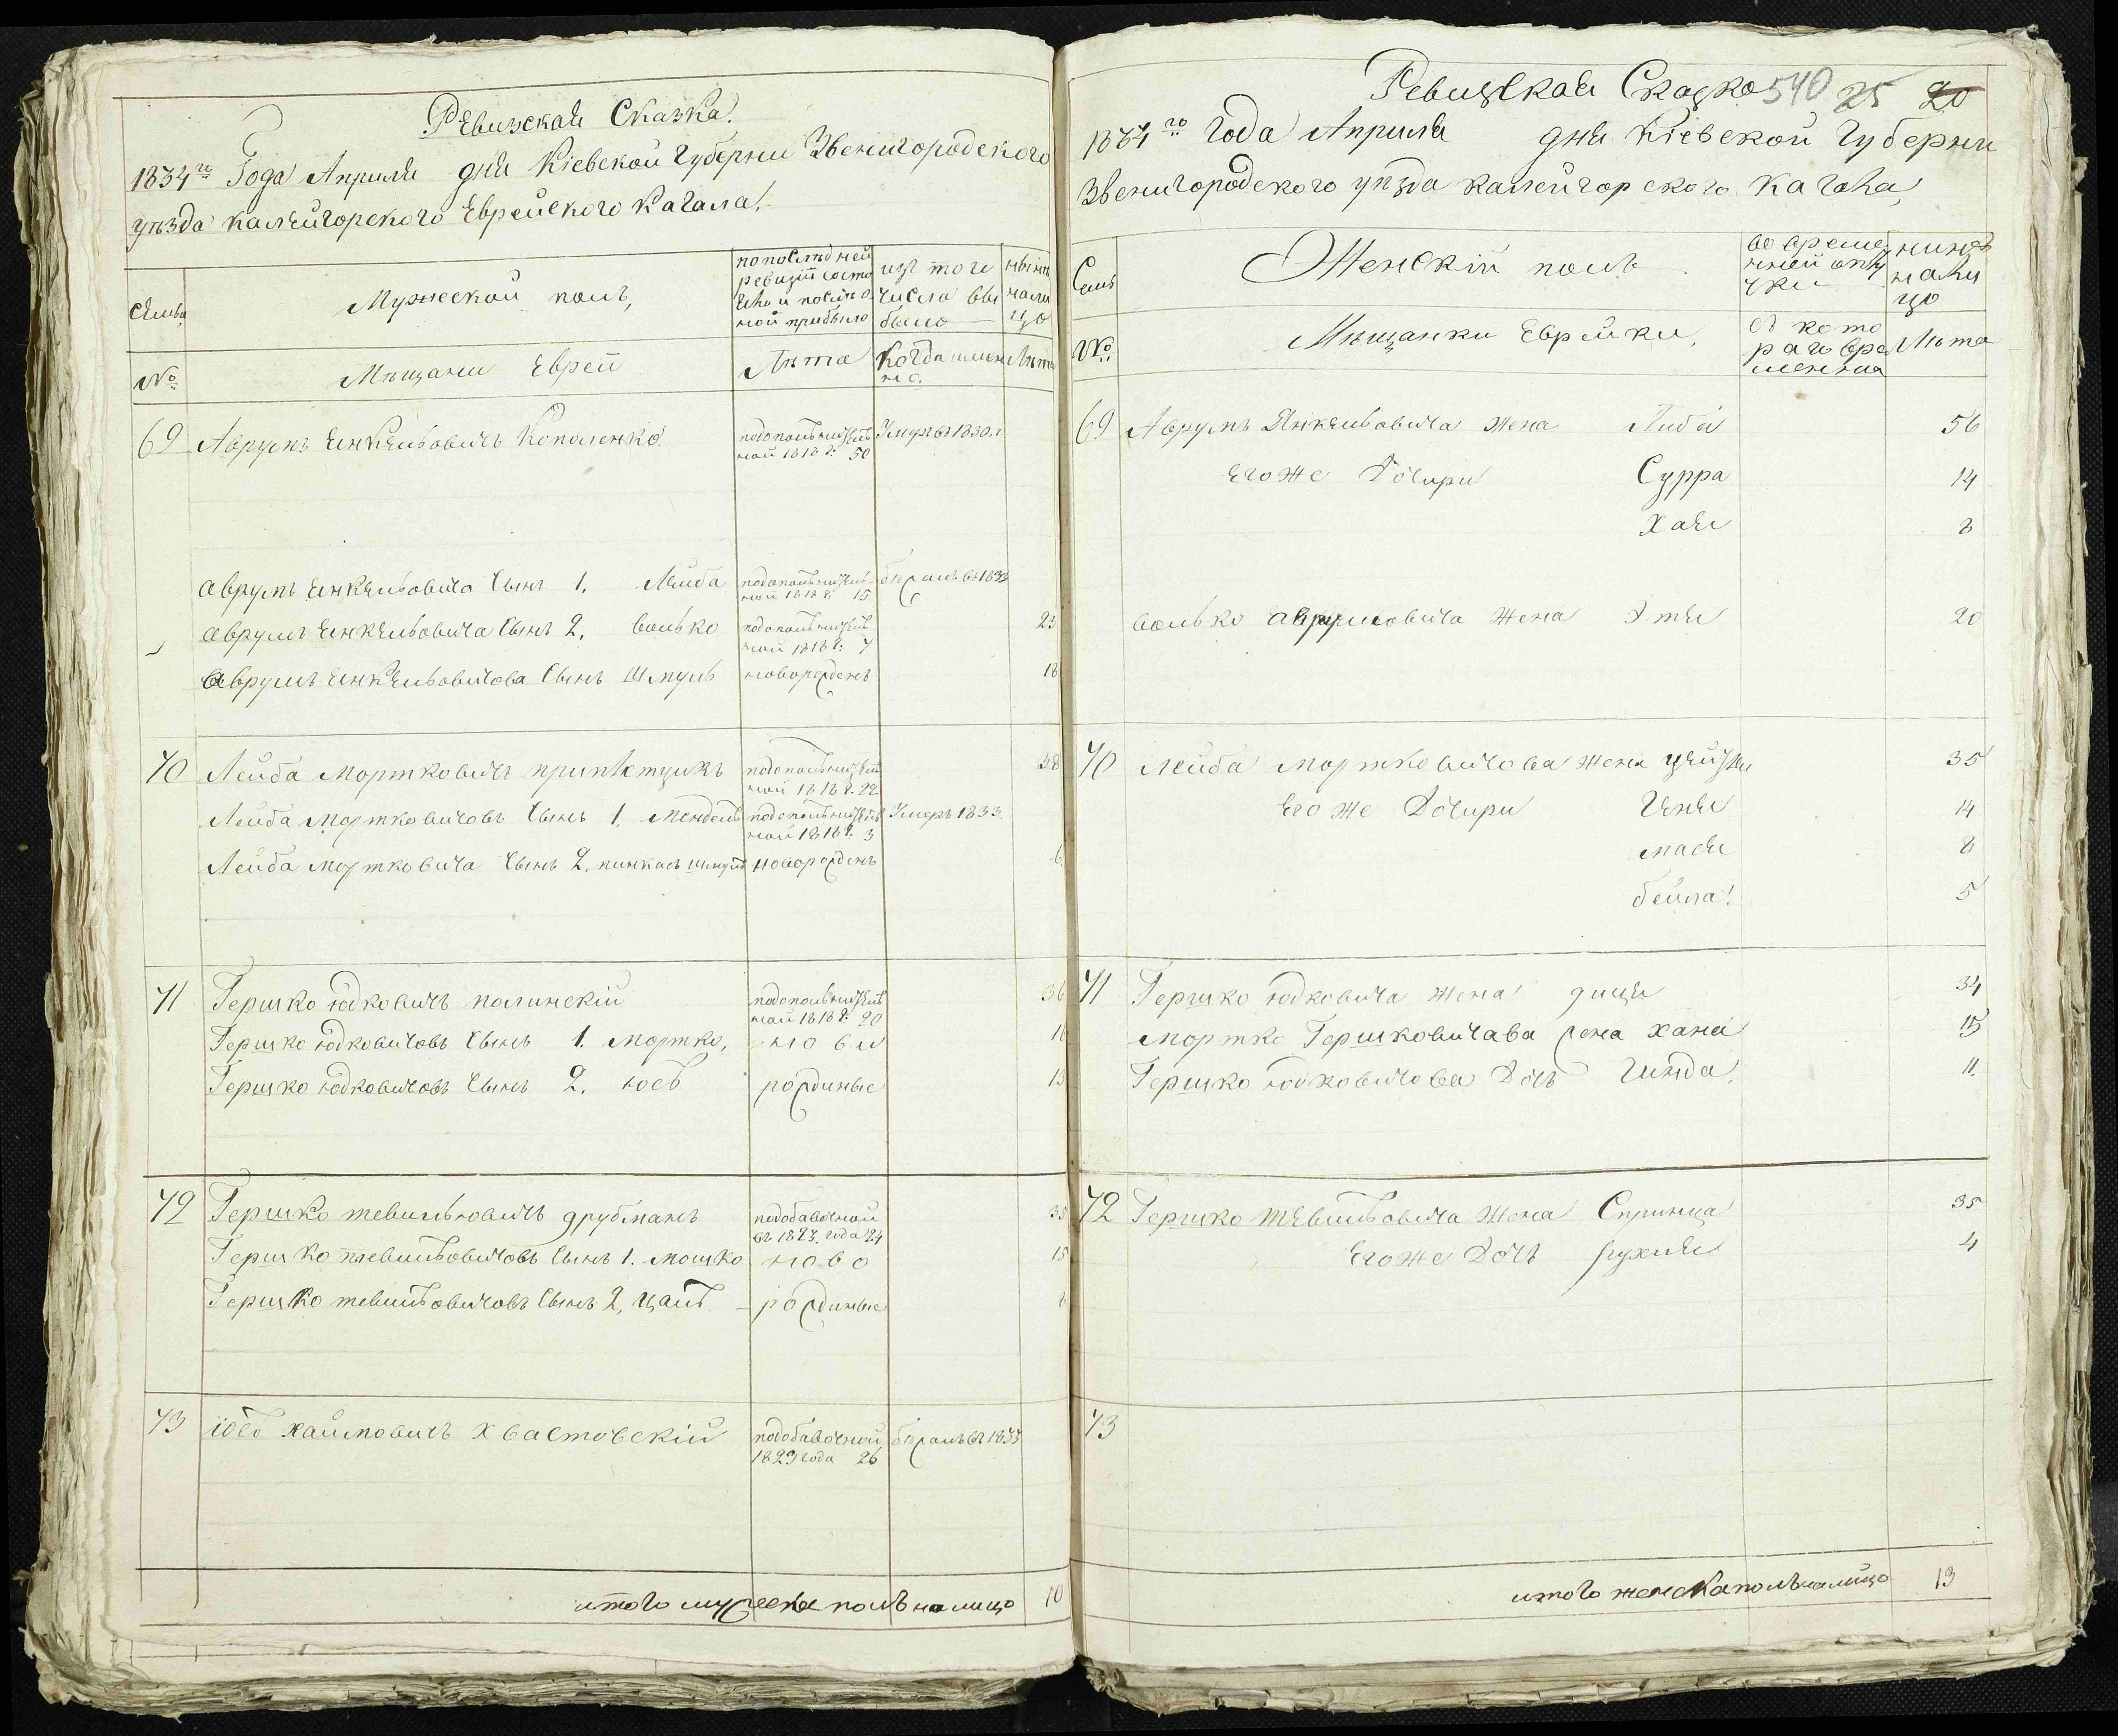 Ревизская Сказка.
1834го Года Апреля дня Кіевской Губерни Звенигородского
уезда калнигорского Еврейского Кагала.
Семьи
Мужеской полъ,
по последней ревизіи состояло и после оной прибыло
изъ того числа выбыло
ныне налицо
№
Мещани Евреи
Лета
Когда именно
Лета
69 Аврумъ Янкельовичъ Копаленко
ной 1818 г. 50
Умеръ въ 1830 г
Аврумъ Янкельовича Сынъ 1. Лейба
ной 1818 г. 15
Аврумъ Янкельовича Сынъ 2. Волько
ной 1818 г. 7
23
Аврумъ Янкельовичова Сынъ Шмуль новорожденъ 18
70 Лейба Мортковичъ
ной 1818 г. 22
38
Лейба Мортковичовъ Сынъ 1. Мендель
ной 1818 г. 3
Умеръ 1833
Лейба Мортковича Сынъ 2. пинкасъ шмуль новорожденъ 6
71 Гершко юдковичъ палинскій
ной 1818 г. 20
36
Гершко юдковичовъ Сынъ 1. Мортко, ново
Гершко юдковичовъ Сынъ 2. юсь рожденые 13
72 Гершко тевильовичъ друбманъ
подобавочной
въ 1827. года 24
35
Гершко тевильовичовъ Сынъ 1. Мошко ново 15
Гершко тевильовичовъ Сынъ 2, рожденые
73 іось хаимовичъ хвастовскій
подобавочной
1829 года 26
бежалъ въ 1833
итого мужеска полъ налицо 10
Ревизская Сказка 540 25 20
1834го Года Апреля дня Кіевской Губерни
Звенигородского уезда калнигорского Кагала,
Семьи
Женскій полъ.
во временной отлучки
ныне налицо
№
Мещанки Еврейки.
съ которого времени
Лета
69 Аврумъ Янкельовича жена Либа 56
Егоже Дочири Сурра 14
Хая 8
Волько Аврумовича жена Этя 20
70 Лейба Мортковичова жена 35
Егоже Дочири Геня 14
Мася 8
бейла. 5
71 Гершко юдковича жена 34
Мортко Гершковичава жена хана 15
Гершко юдковичова Дочь Гинда. 11.
72 Гершко тевильовича жена Спринца 35
Егоже Дочь рухля 4
73
итого женска полъ налицо 13